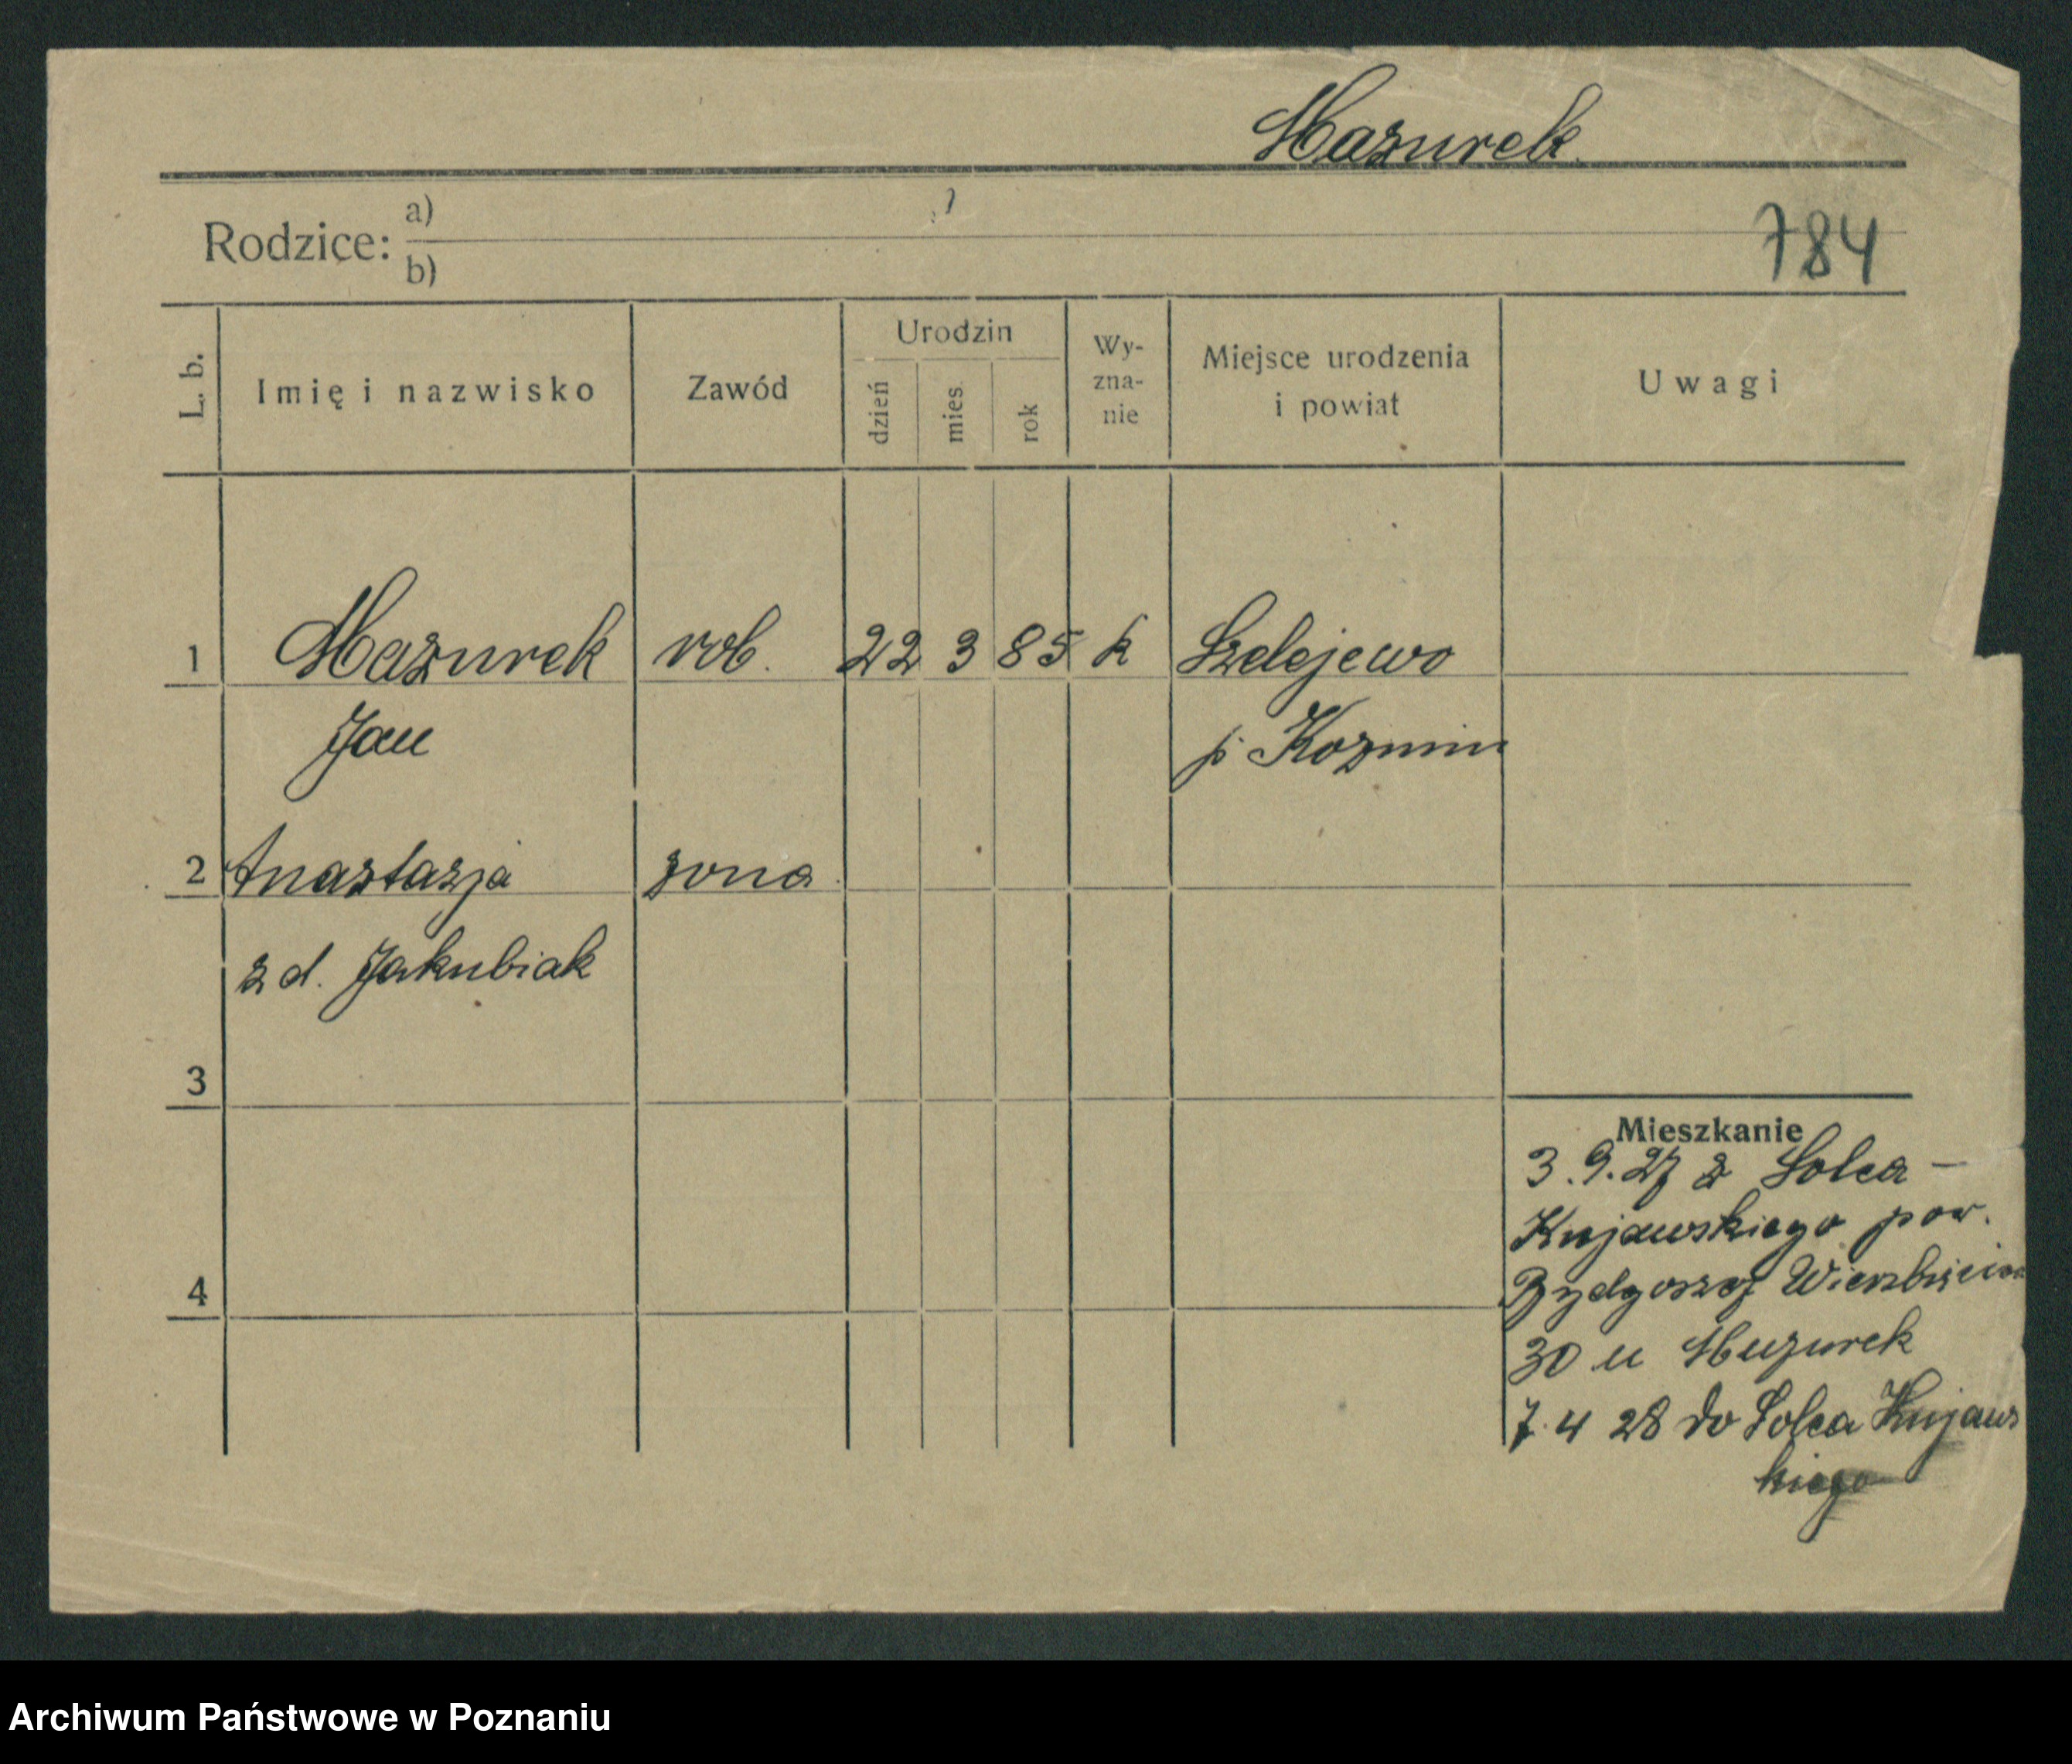 Mazurek
784
Rodzice: a)
b)
L. b.
Imię i nazwisko
Zawód
Urodzin
dzień
mies.
rok
Wy-
zna-
nie
Miejsce urodzenia
i powiat
Uwagi
1 Mazurek rob. 22 3 85 k Szelejewo
Jan p. Kozmin
2 Anastazja zona
z d. Jakubiak
3
Mieszkanie
3.9.27 z Solca -
Kujawskiego pow.
Bydgoszcz
4
30 u Mazurek
7.4 28 do Solca Kujaws
kiego
Archiwum Państwowe w Poznaniu